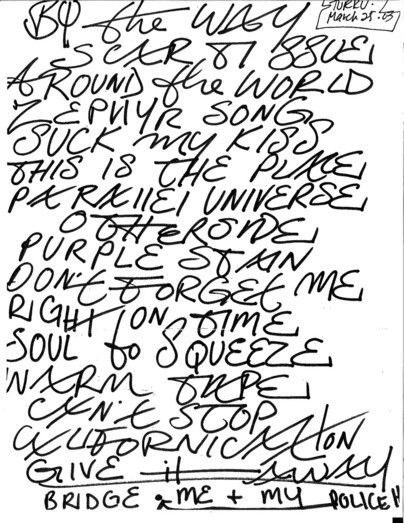 TURKU.
March 25.03
BY the WAY
SCAR TISSUE
AROUND the WORLD
ZEPHYR SONG
SUCK MY KISS
THIS IS THE PLACE
PARAllEl UNIVERSE
OTHERSIDE
PURPLE STAIN
DON'T FORGET ME
RIGHT ON TIME
SOUL to SQUEEZE
WARM TAPE
CAN'T STOP
CALIFORNICATION
GIVE it AWAY
BRIDGE ME + MY